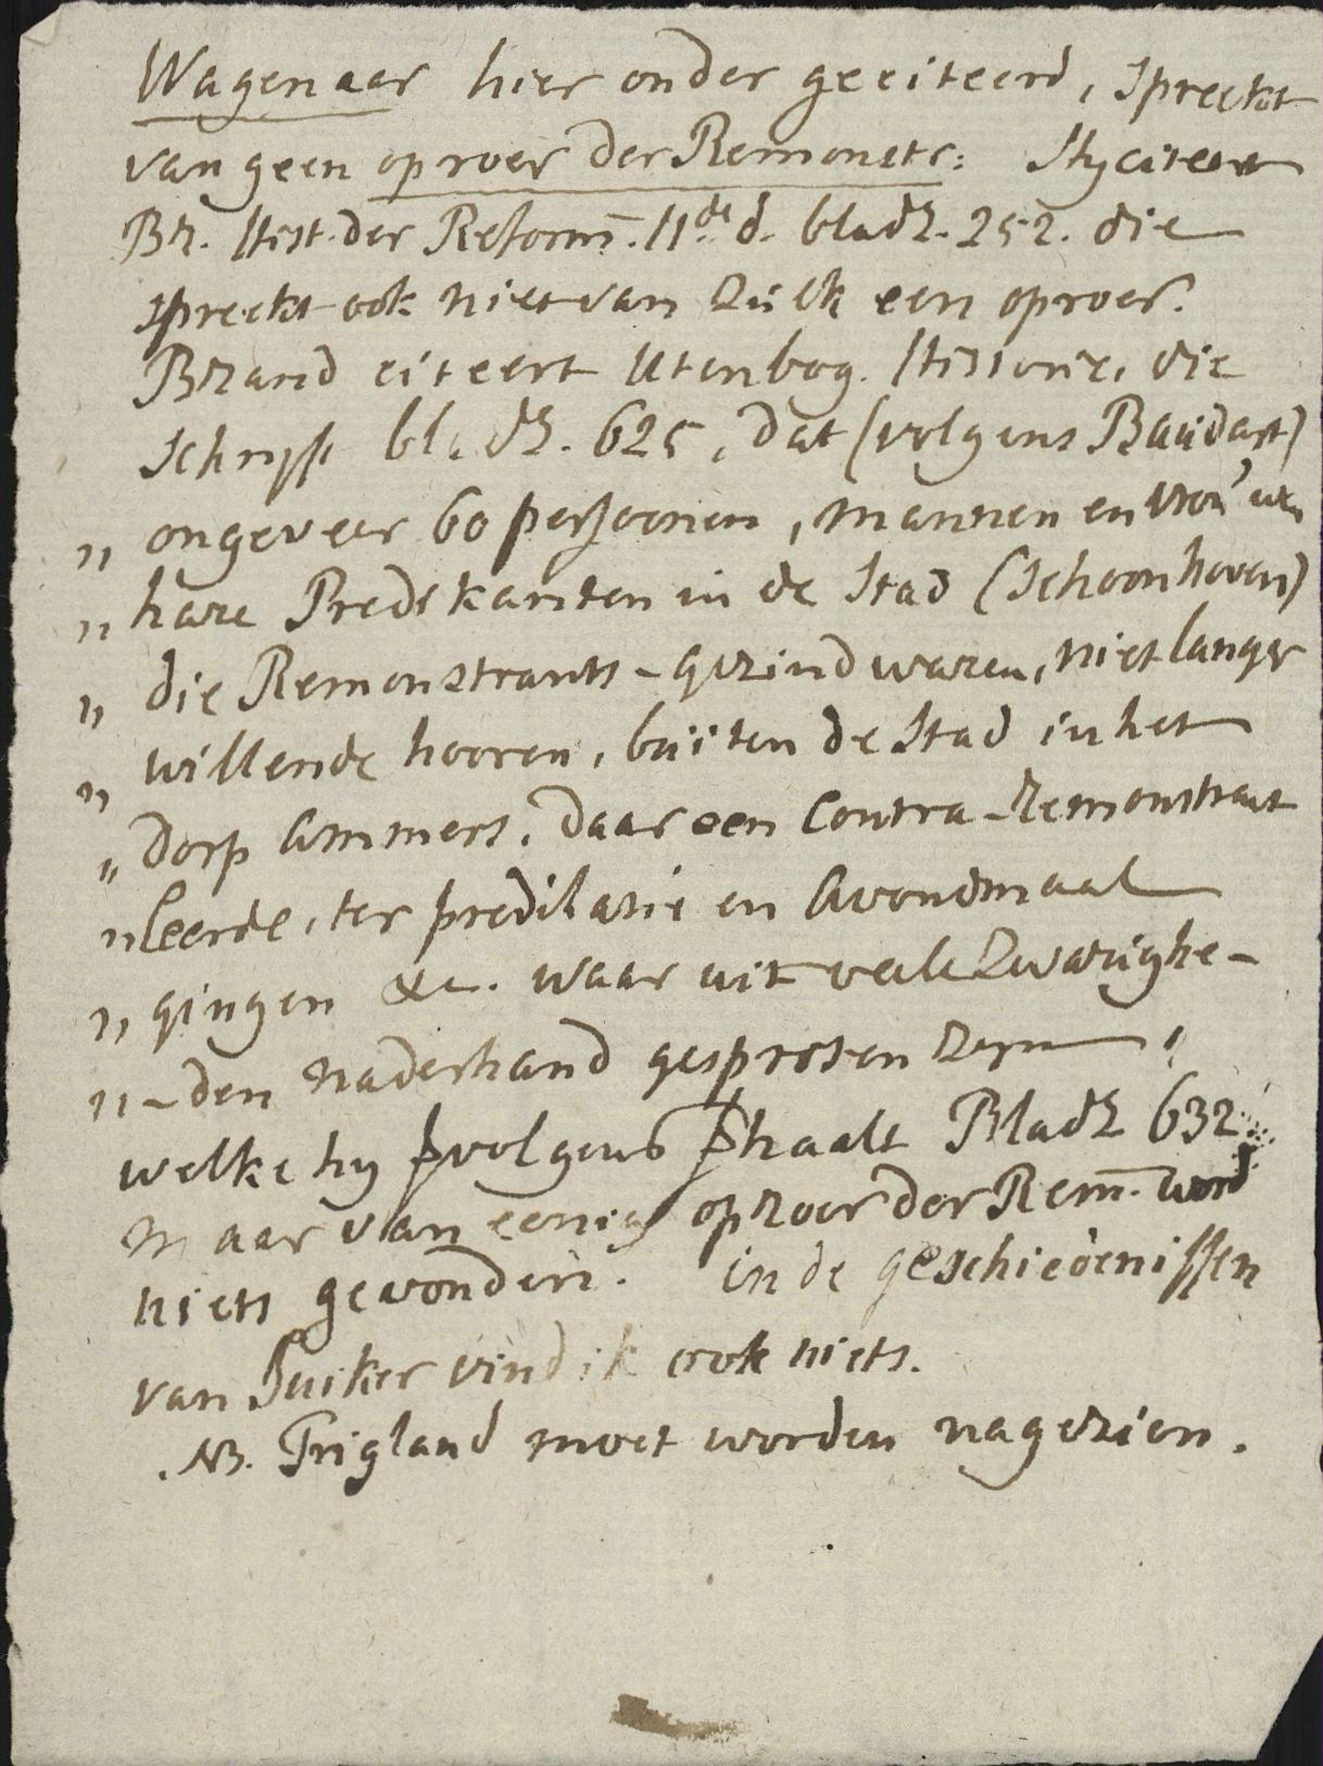 Wagenaar hier onder geciteerd, spreekt
van geen oproer der Remonstr: Hy citeert
Br. Hist. der Reform. IIde d. bladz. 252. die
spreekt ook niet van zulk een oproer.
Brand citeert Utenbog. Historie, die
schryft bladz. 625, dat (volgens Baudart)
„ ongeveer 60 persoonen, mannen en vrou'wen
„ hare Predikanten in de Stad (Schoonhoven)
„ die Remonstrants-gezind waren, niet langer
„ willende hooren, buiten de Stad in het
„ dorp Ammers, daar een Contra-Remonstrant
„ leerde, ter predikatie en Avondmaal
„ gingen &c. waar uit veele Zwarighe-
„ -den naderhand gesproten zyn,
welke hy vervolgens verhaalt Bladz 632.
maar van eenig oproer der Rem. word
niets gevonden. in de geschiedenissen
van Suiker vind ik ook niets.
NB. Trigland moet worden nagezien.